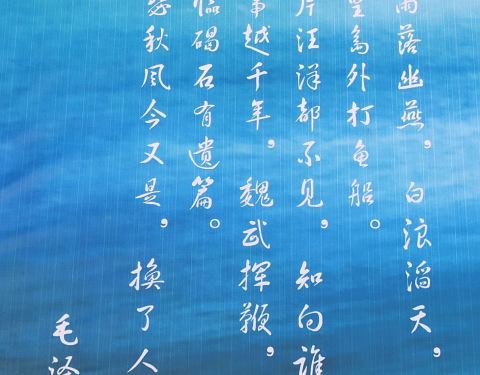 雨落幽燕，白浪滔天，
皇岛外打鱼船。
片汪洋都不见，知向谁
事越千年，魏武挥鞭，
临碣石有遗篇。
瑟秋风今又是，换了人
毛泽